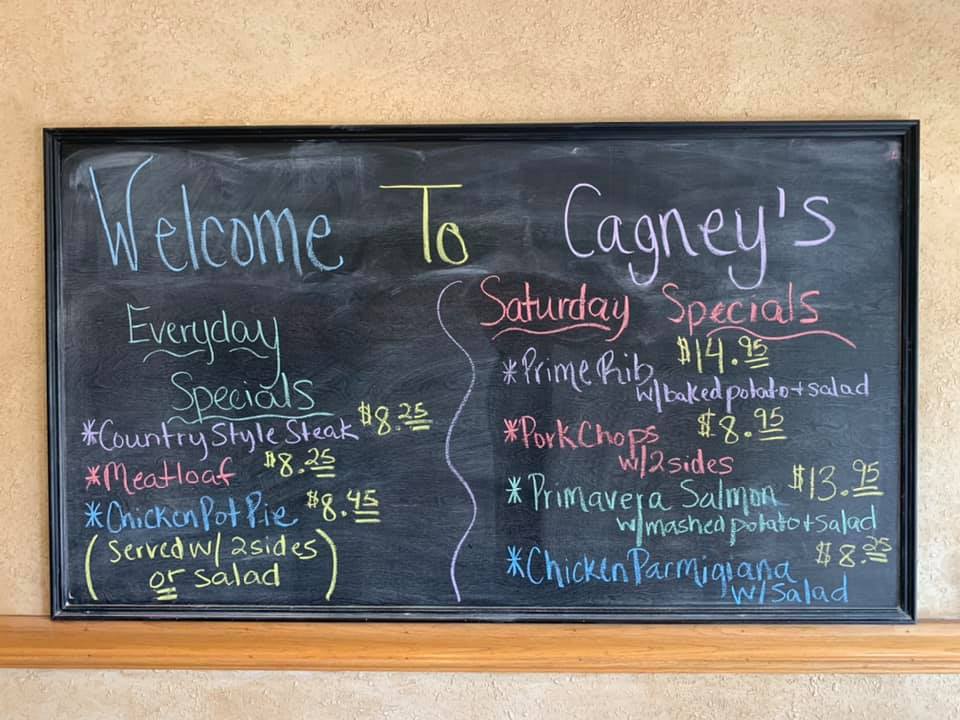 Welcome To Cagney's
Everyday
Specials
*Country Style Steak $8.25
*Meatloaf $8.25
*Chicken Pot Pie $8.45
(Served w/ 2 sides
or salad)
Saturday Specials
*Prime Rib $14.95
w/baked potato + salad
*Pork Chops $8.95
w/2 sides
*Primavera Salmon $13.95
w/mashed potato + salad
*Chicken Parmigiana $8.25
w/salad